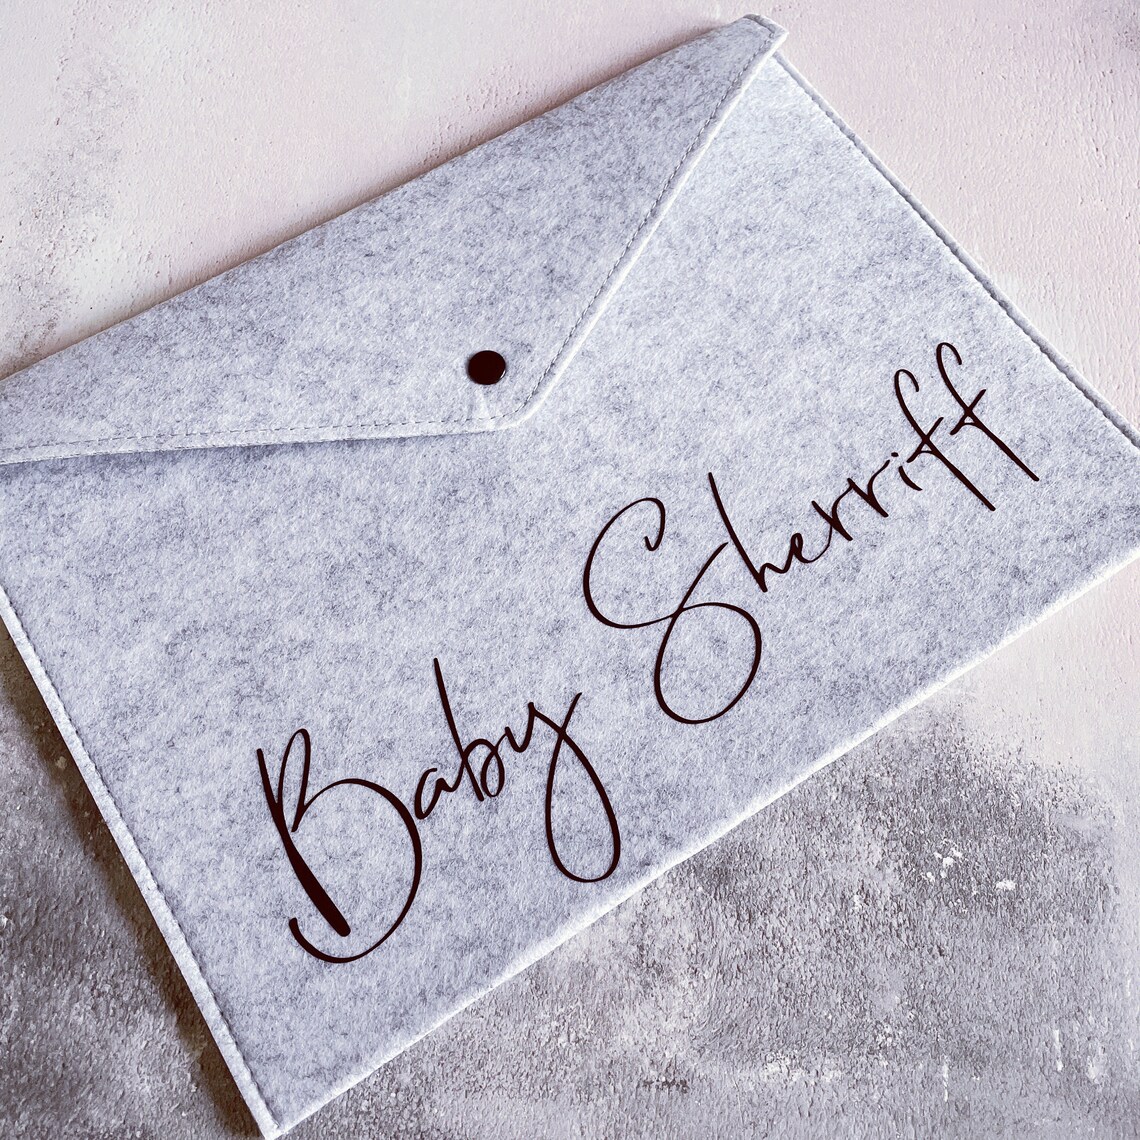 Baby Sherriff